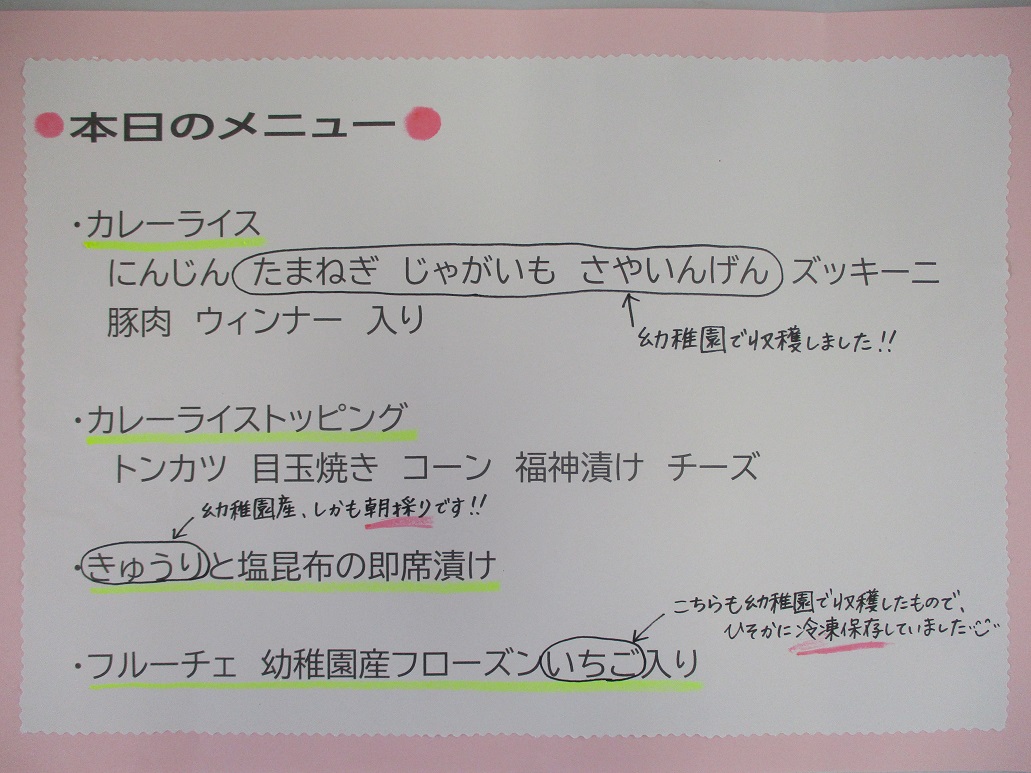 ●本日のメニュー●
・カレーライス
にんじん たまねぎ じゃがいも さやいんげん ズッキーニ
豚肉 ウィンナー 入り
幼稚園で収穫しました!!
・カレーライストッピング
トンカツ 目玉焼き コーン 福神漬け チーズ
幼稚園産、しかも朝採りです!!
・きゅうりと塩昆布の即席漬け
こちらも幼稚園で収穫したもので、
ひそかに冷凍保存していました
・フルーチェ 幼稚園産フローズンいちご入り